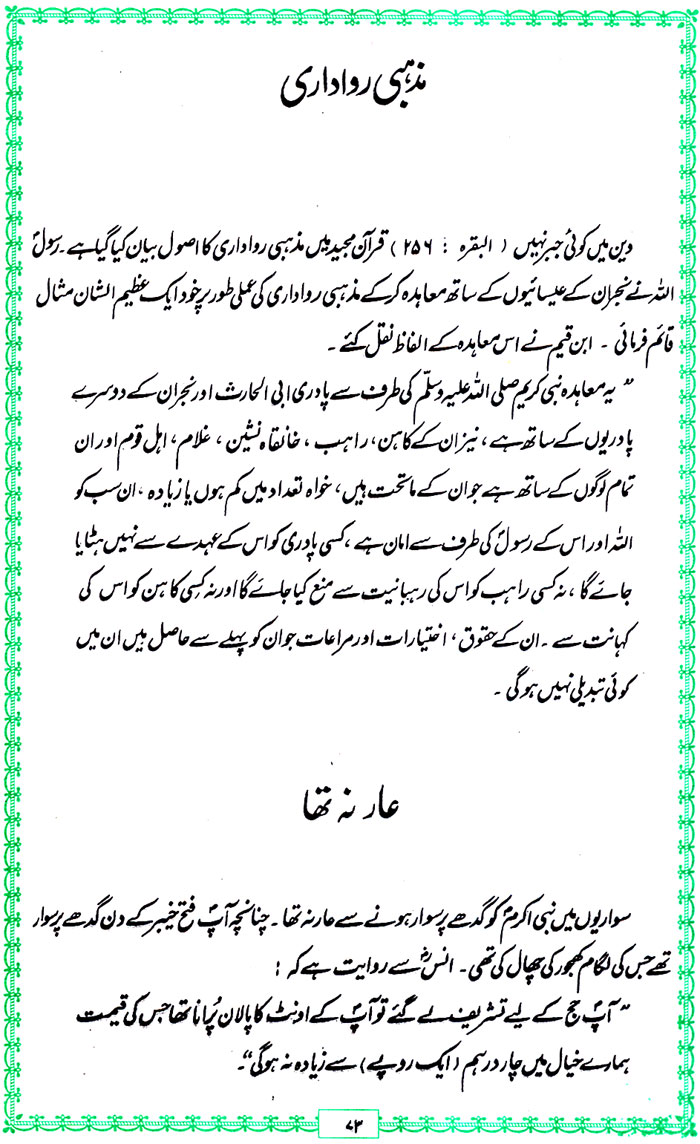 مذہبی رواداری
دین میں کوئی جبر نہیں ( البقرہ : ۲۵۶ ) قرآن مجید میں مذہبی رواداری کا اصول بیان کیا گیا ہے ۔ رسولؐ
اللہ نے نجران کے عیسائیوں کے ساتھ معاہدہ کر کے مذہبی رواداری کی عملی طور پر خود ایک عظیم الشان مثال
قائم فرمائی ۔ ابن قیم نے اس معاہدہ کے الفاظ نقل کئے ۔
” یہ معاہدہ نبی کریم صلی اللہ علیہ وسلّم کی طرف سے پادری ابی الحارث اور نجران کے دوسرے
پادریوں کے ساتھ ہے ، نیز ان کے کاہن، راہب ، خانقاہ نشین ، غلام ، اہل قوم اور ان
تمام لوگوں کے ساتھ ہے جو ان کے ماتحت ہیں، خواہ تعداد میں کم ہوں یا زیادہ ، ان سب کو
اللہ اور اس کے رسولؐ کی طرف سے امان ہے ، کسی پادری کو اس کے عہدے سے نہیں ہٹایا
جائے گا ، نہ کسی راہب کو اس کی رہبانیت سے منع کیا جائے گا اور نہ کسی کاہن کو اس کی
کہانت سے ۔ ان کے حقوق ، اختیارات اور مراعات جو ان کو پہلے سے حاصل ہیں ان میں
کوئی تبدیلی نہیں ہو گی ۔
عار نہ تھا
سواریوں میں نبی اکرمؐ کو گدھے پر سوار ہونے سے عار نہ تھا ۔ چنانچہ آپؐ فتح خیبر کے دن گدھے پر سوار
تھے جس کی لگام کھجور کی چھال کی تھی ۔ انسؓ سے روایت ہے کہ :
” آپؐ حج کے لیے تشریف لے گئے تو آپؐ کے اونٹ کا پالان پُرانا تھا جس کی قیمت
ہمارے خیال میں چار درہم ( ایک روپے ) سے زیادہ نہ ہو گی “۔
۷۳